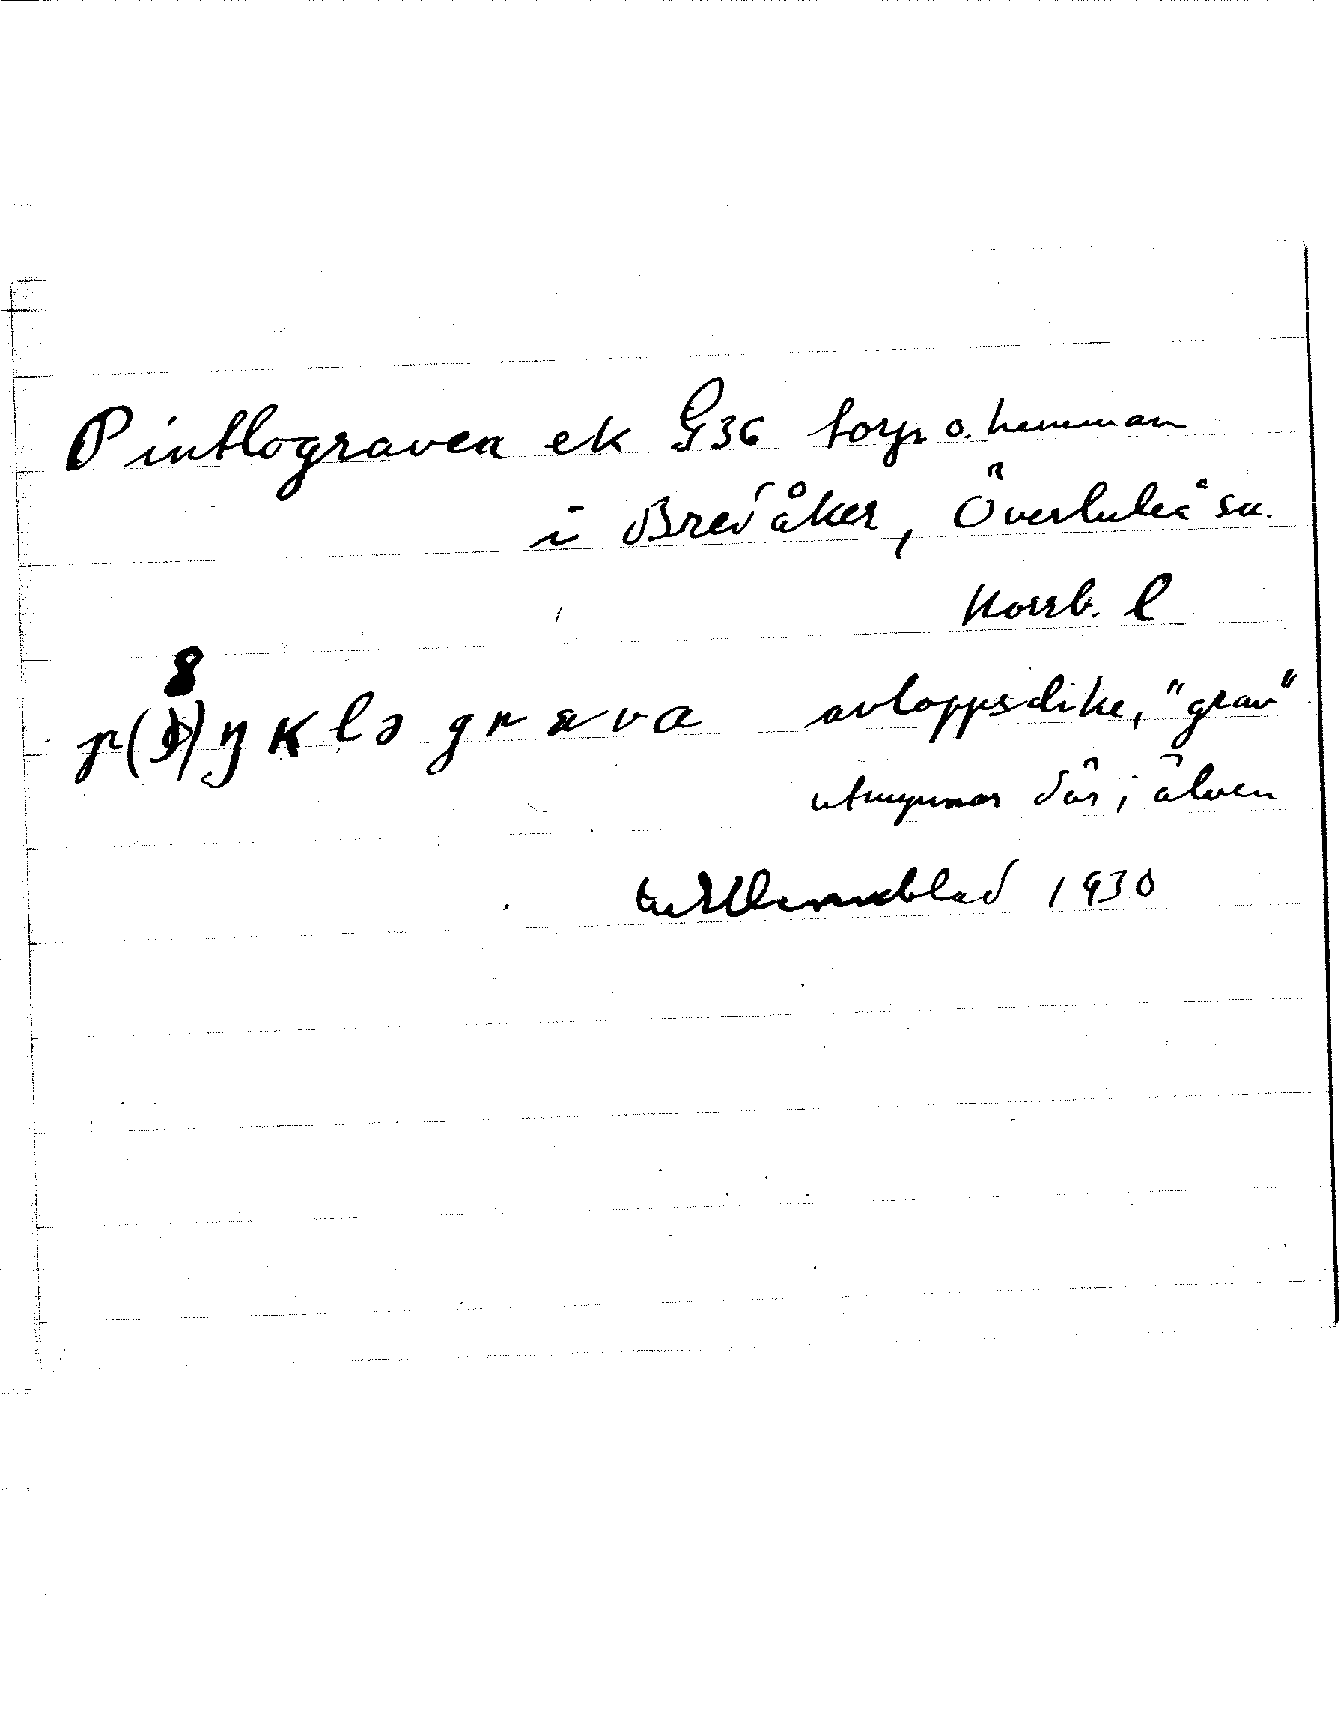 Pintlograven ek G36 torp o. hemman
i Bredåker, Överluleå sn.
Norrb. l
grava avloppsdike, "grav"
utmynnar där i älven
1930